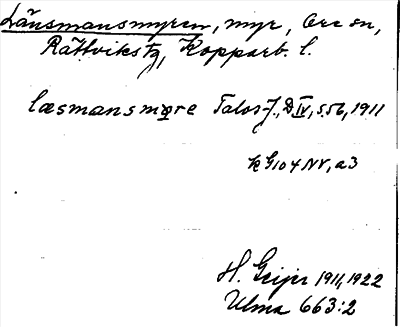 Länsmansmyren, myr, Ore sn,
Rättvikstg, Kopparb. l.
læsmansmøre Talos-J., D IV, s. 56, 1911
k G104 NV, a3
H. Geijer 1911, 1922
Ulma 663:2